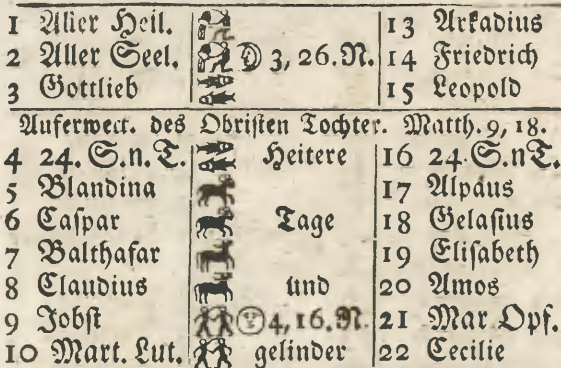 1 Aller Heil. 13 Arkadius
2 Aller Seel. 3, 26. N. 14 Friedrich
3 Gottlieb 15 Leopold
Auferweck. des Obristen Tochter. Matth. 9, 18.
4 24. S. n. T. Heitere 16 24 S. n T.
5 Blandina 17 Alpäus
6 Caspar Tage 18 Gelasius
7 Balthasar 19 Elisabeth
8 Claudius und 20 Amos
9 Jobst 4, 16. N. 21 Mar Opf.
10 Mart. Lut. gelinder 22 Cecilie